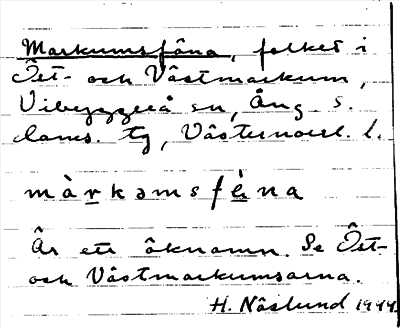 Markumsfåna, folket i
Öst- och Västmarkum,
Vibyggerå sn, Ång. s.
doms. tg, Västernorrl. l.
màrkəmsfèna
Är ett öknamn. Se Öst-
och Västmarkumsarna.
H. Näslund 1944.